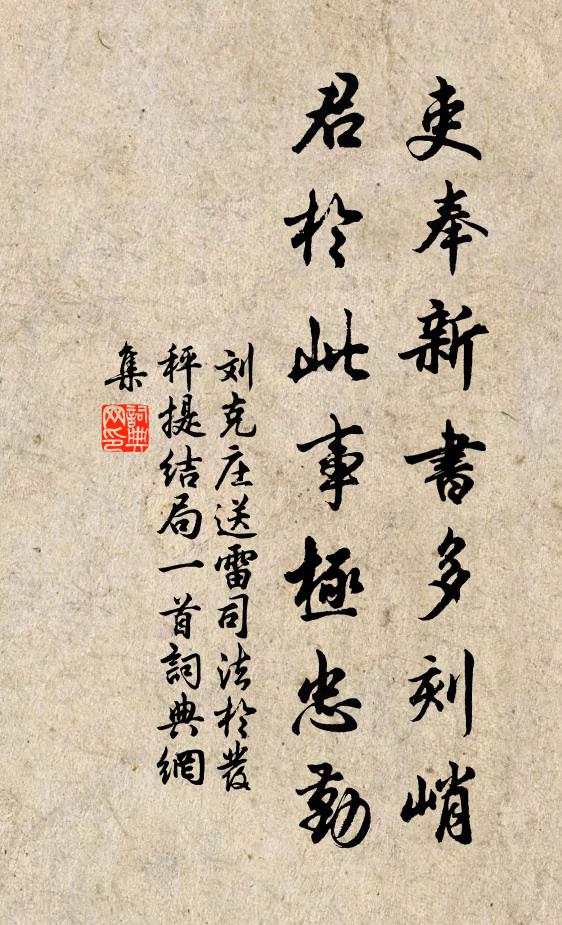 吏奉新書多刻峭
君於此事極忠勤
刘克庄送雷司法於發
秤提结局一首詞典網
集
詞典網印